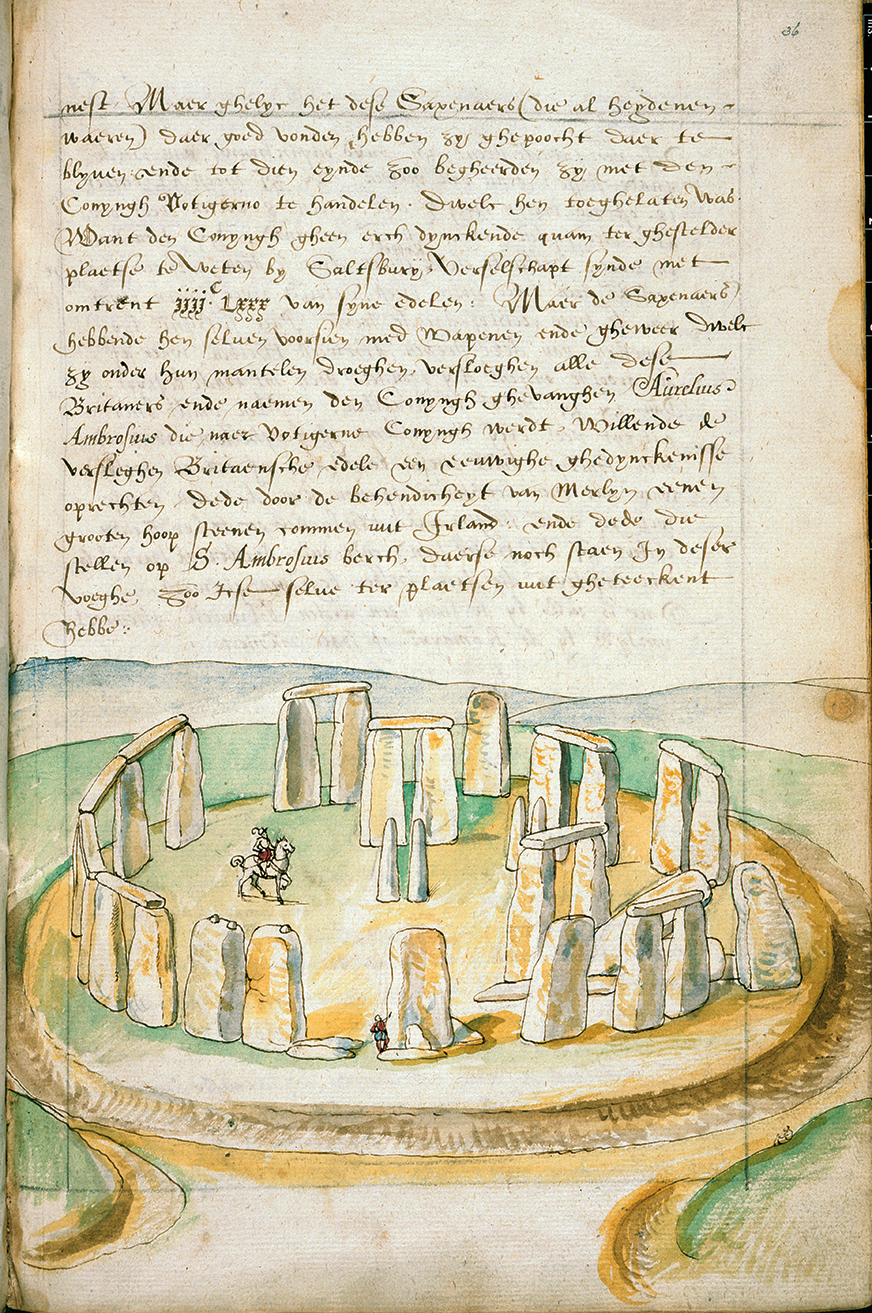 36
nest. Maer ghelyc het dese Saxenaers (die al heydenen
waeren) daer goed vonden hebben zy ghepoocht daer te
blyven. ende tot dien eynde zoo begheerden zy met den
Conyngh Votigerno te handelen. dwelc hen toeghelaten was.
Want den Conyngh gheen erch dynckende quam ter ghestelder
plaetse te weten by Saltsbury, verselschapt synde met
omtrent iiij.C Lxxx van syne edelen: Maer de Saxenaers
hebbende hen selven voorsien med wapenen ende gheweer dwelc
zy onder hun mantelen droeghen, versloeghen alle dese
Britaners, ende naemen den Conyngh ghevanghen Aurelius
Ambrosius die naer Votigerne Conyngh werdt, Willende de
versleghen Britaensche edele een eeuwighe ghedynckenisse
oprechten, dede door de behendicheyt van Merlyn eenen
grooten hoop steenen commen uut Irland: ende dede die
stellen op S. Ambrosius berch, daerse noch staen In deser
voeghe, zoo Icse selve ter plaetsen uut gheteeckent
hebbe: